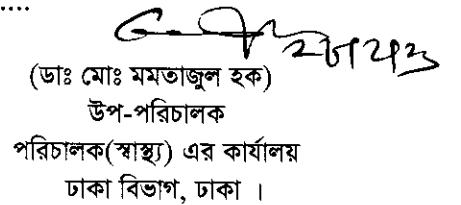 ....
(ডাঃ মোঃ মমতাজুল হক)
উপ-পরিচালক
পরিচালক(স্বাস্থ্য) এর কার্যালয়
ঢাকা বিভাগ, ঢাকা ।